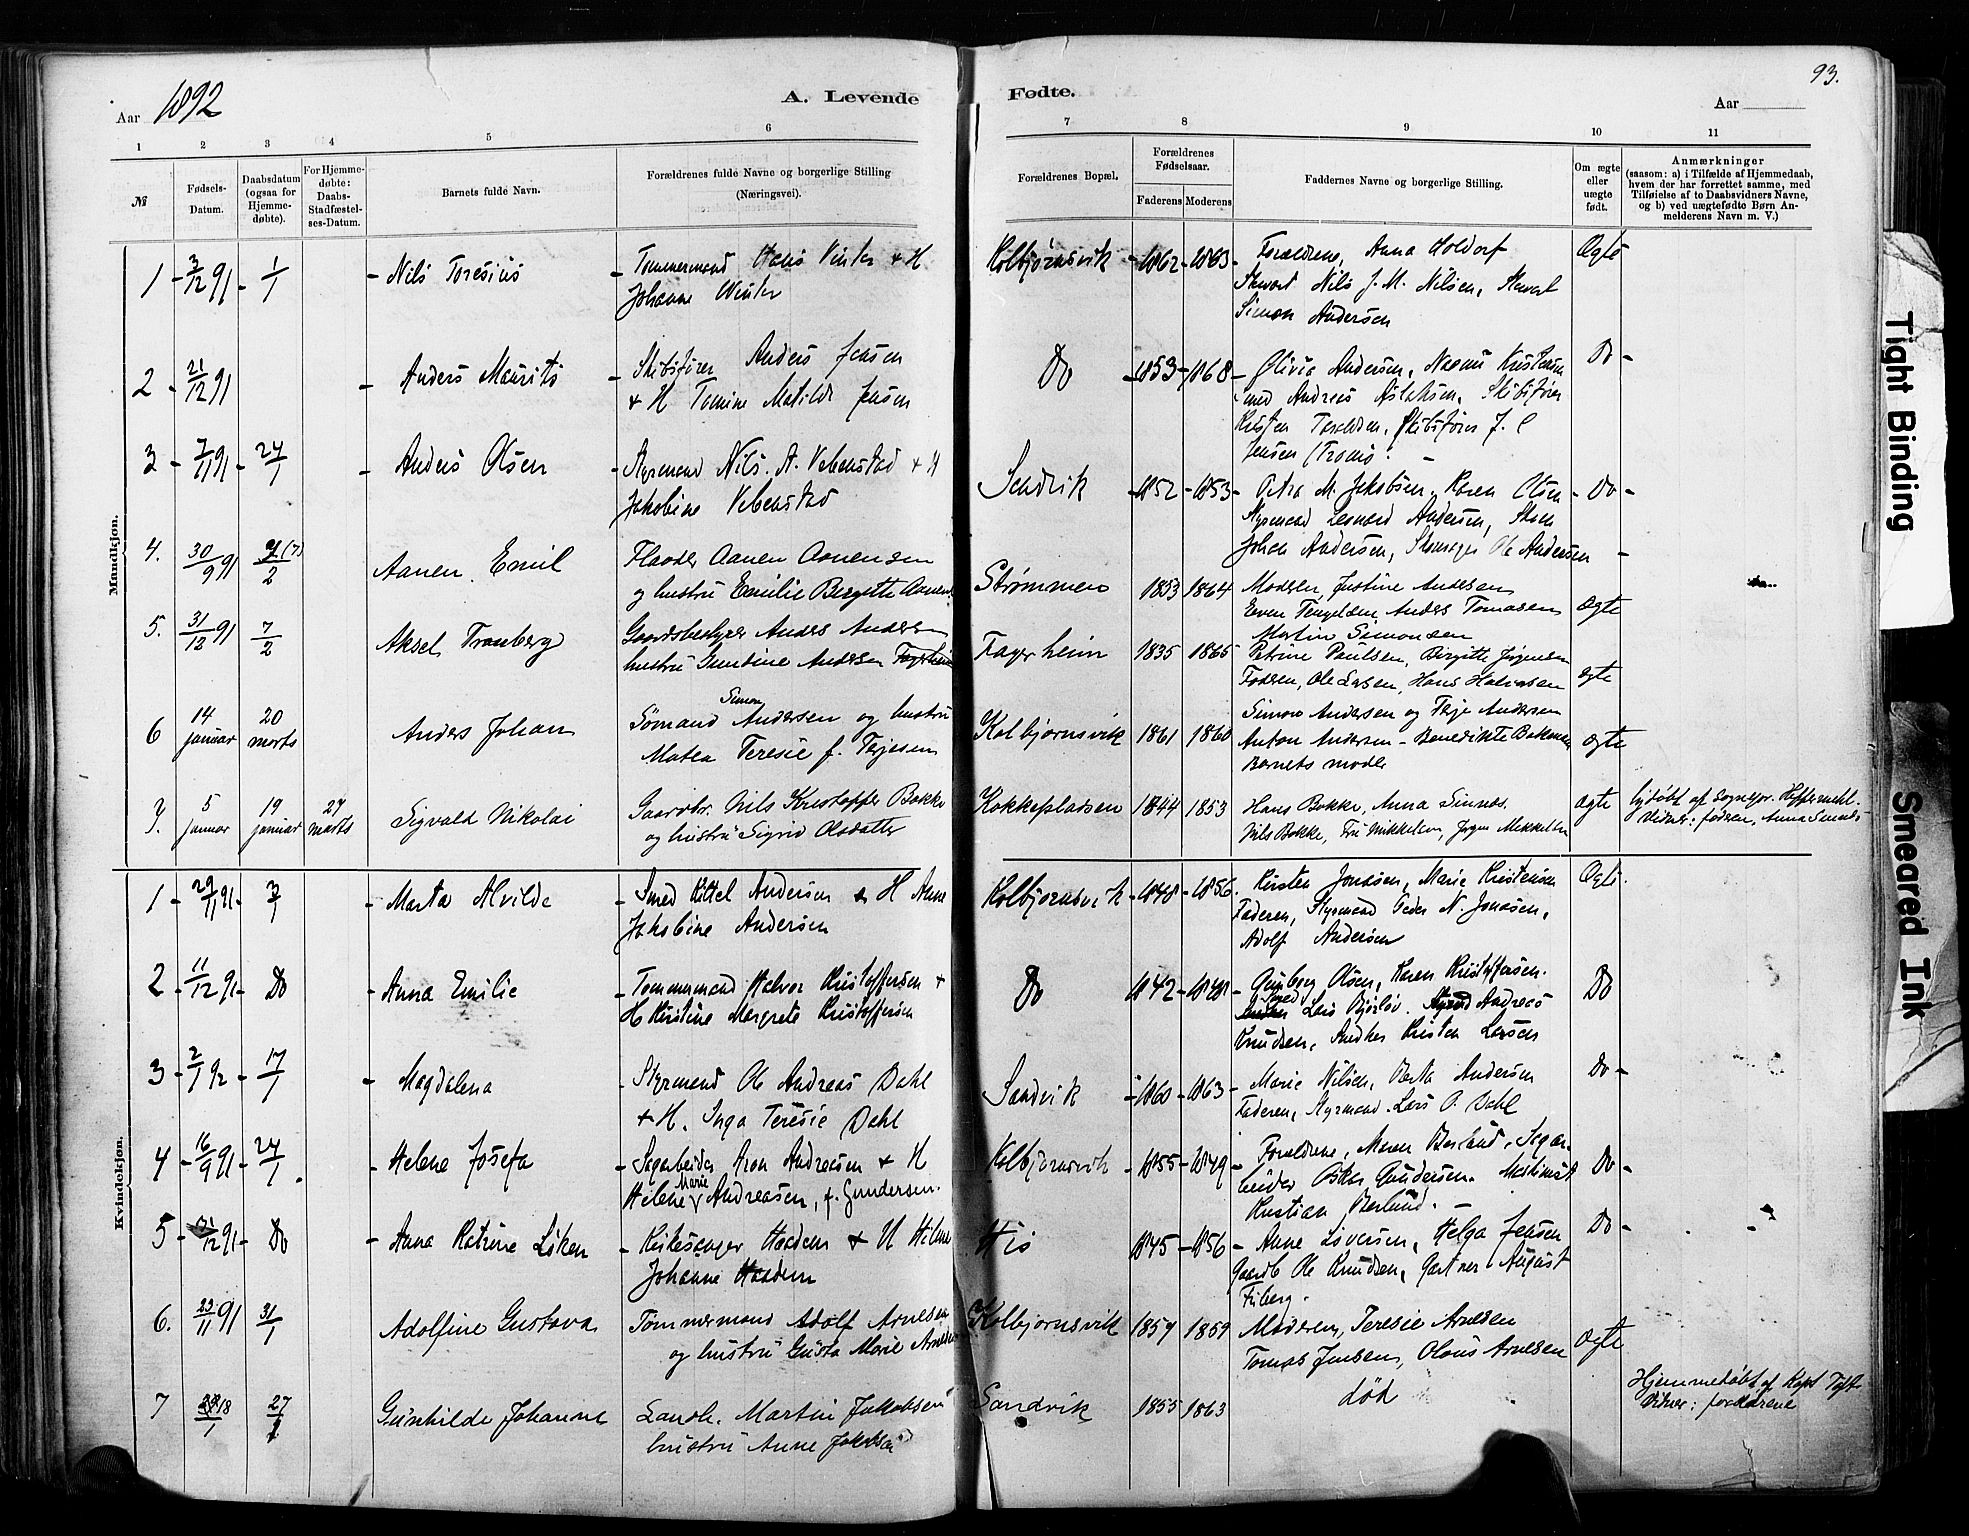 93.
Aar 1892
A. Levende Fødte.
Aar
1 2 3 4 5 6 7 8 9 10 11
№
Fødsels-Datum.
Daabsdatum (ogsaa for Hjemme-døbte).
For Hjemme-døbte: Daabs-Stadfæstel-ses-Datum.
Barnets fulde Navn.
Forældrenes fulde Navne og borgerlige Stilling (Næringsvei).
Forældrenes Bopæl.
Forældrenes Fødselsaar.
Faderens Moderens
Faddernes Navne og borgerlige Stilling.
Om ægte eller uægte født.
Anmærkninger
(saasom: a) i Tilfælde af Hjemmedaab, hvem der har forrettet samme, med Tilføielse af to Daabsvidners Navne, og b) ved uægtefødte Børn An-melderens Navn m. V.)
Mandkjøn.
1 - 3/12 91 - 1/1 - Nils Toresius - Tømmermand Hans Vinter + H Kolbjørnsvik - 1862 - 1863 - Forældrene, Anna Holdorf Ægte
Johanne Winter Stuert Nils J. M. Nilsen, Stuert
Simon Andersen
2 - 21/12 91 - Anders Maurits - Skibsfører Anders Jensen Do - 1853 - 1868 - Olivia Andersen, Naomi Kristensen Do -
+ H Tomine Matilde Jensen Smed Andreas Aslaksen, Skibsfører
Kristen Terkelsen, Skibsfører J. C
Jensen (Tromø).
3 - 7/11 91 - 24/1 - Anders Olsen - Styrmand Nils. A. Vebenstad + H Sandvik - 1852 - 1853 - Petra M. Jakobsen, Karen Olsen - Do -
Jakobine Vebenstad Styrmand Leonard Andersen,
Johan Andersen, Skomager Ole Andersen
4. 30/9 91 /2 Aanen Emil Aanen Aanensen Strømmen 1853 1864 Moderen, Justine Andersen Ægte
og hustru Emilie Birgitte Aanensen Even Tengelsen, Anders Tomasen
Martin Simonsen
5. 31/12 91 7/2 Aksel Tranberg Gaardsbestyrer Anders Andersen Fagerheim 1835 1865 Petrine Paulsen, Birgitte Jørgensen ægte
hustru Gunstine Andersen Fagerheim Faderen, Ole Larsen, Hans Halvorsen
6 14 januar 20 marts Anders Johan Sømand Simon Andersen og hustru Kolbjørnsvik 1861 1860 Simon Andersen og Terje Andersen ægte
Matea Teresie f. Terjesen Anton Andersen - Benedikte Bakeman
Barnets moder
7. 5 januar 19 januar 27 marts Sigvald Nikolai Gaardbr. Nils Kristoffer Bakke Kokkepladsen 1844 1853 Hans Bakke, Anna Sinnæs. ægte
og hustru Sigrid Olsdatter Nils Bakke, Fru Mikkelsen, Jørgen Mikkelsen
Vidner: faderen, Anna Sinnæs
Kvindekjøn.
1 - 29/11 91 - 3/1 - Marta Alvilde - Smed Kittel Andersen & H Anne Kolbjørnsvik - 1848 - 1856. Kirsten Jonassen, Marie Kristensen Ægte.
Jakobine Andersen Faderen, Styrmand Peder N. Jonassen,
Adolf Andersen
2 - 11/12 91 - Do - Anna Emilie - Tømmermand Halvor Kristoffersen + Do 1842 - 1848 - Gunborg Olsen, Karen Kristoffersen. Do
H Kirstine Margrete Kristoffersen Smed Lars Andreas
Knudsen, Snedker Kristen Larsen
3 - 2/1 92 - 17/1 - Magdalena - Styrmand Ole Andreas Dahl Sandvik - 1860 - 1863 - Marie Nilsen, Berta Andersen Do -
+ H. Inga Teresie Dahl Faderen, Styrmand Lars O. Dahl
4 - 16/9 91 - 24/1. - Helene Josefa - Sagarbeider Aron Andreasen + H Kolbjørnsvik - 1855 - 1849 - Forældrene, Maren Berlund, Sagar- Do -
Helene Marie Andreasen, f. Gundersen. beider Oskar Gundersen. Maskinist
Kristian Berlund. -
5 - 21/12 91 - Do - Anna Katrine Løken - Kirkesanger Haadem + H Hilma His 1845 - 1856 - Anne Siversen, Helga Jensen Do -
Johanne Haadem Gaardb Ole Knudsen, Gartner August
Friberg.
6. 23/11 91 31/1 Adolfine Gustava Tømmermand Adolf Arnesen Kolbjørnsvik 1857 1859 Moderen, Teresie Arnesen Ægte
og hustru Gusta Marie Arnesen Tomas Jensen, Olaus Arnesen
7 18/1 27/1 Gunhilde Johanne Landh. Martin Jakobsen Sandvik 1855 1863 død
hustru Anne Jakobsen
Hjemmedøbt af Kapt Toft
Vidner: forældrene
Tight Binding
Smeared Ink